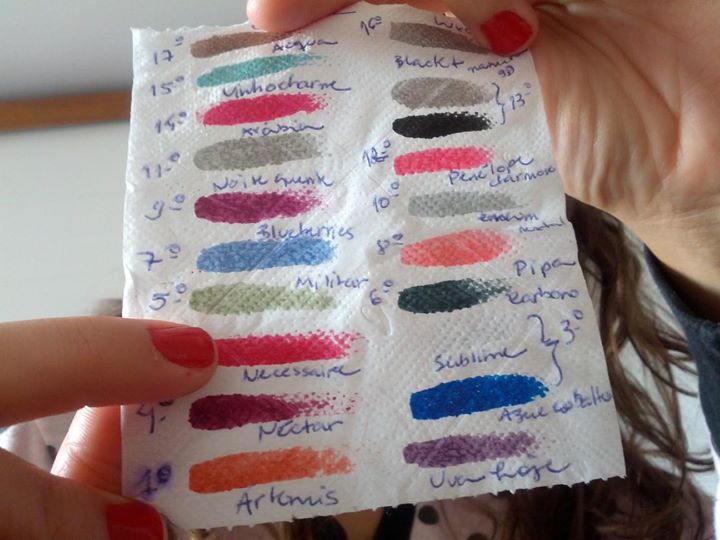 17º
Acqua
15º
Vinhocharme
14º
Arábia
11º
Noite quente
9º
Blueberries
7º
Militar
5º
Necessaire
4º
Néctar
1º
Artemis
16º
Black +
13º
12º
Penélope
charmosa
10º
8º
Pipa
6º
Carbono
3º
Sublime
Azul
Uva